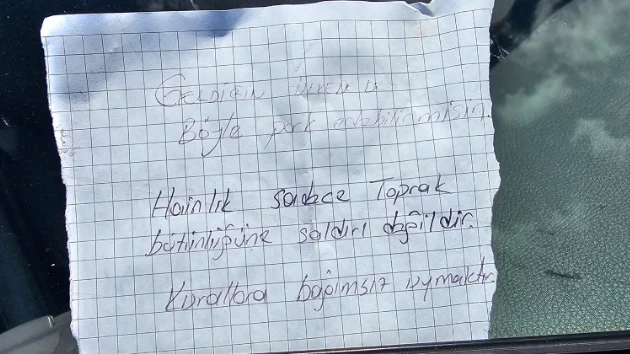 GELDİĞİN ÜLKEN DE
Böyle park edebilirmisin.
Hainlik sadece Toprak
bütünlüğüne saldırı değildir.
Kurallara bağımsız uymaktır.